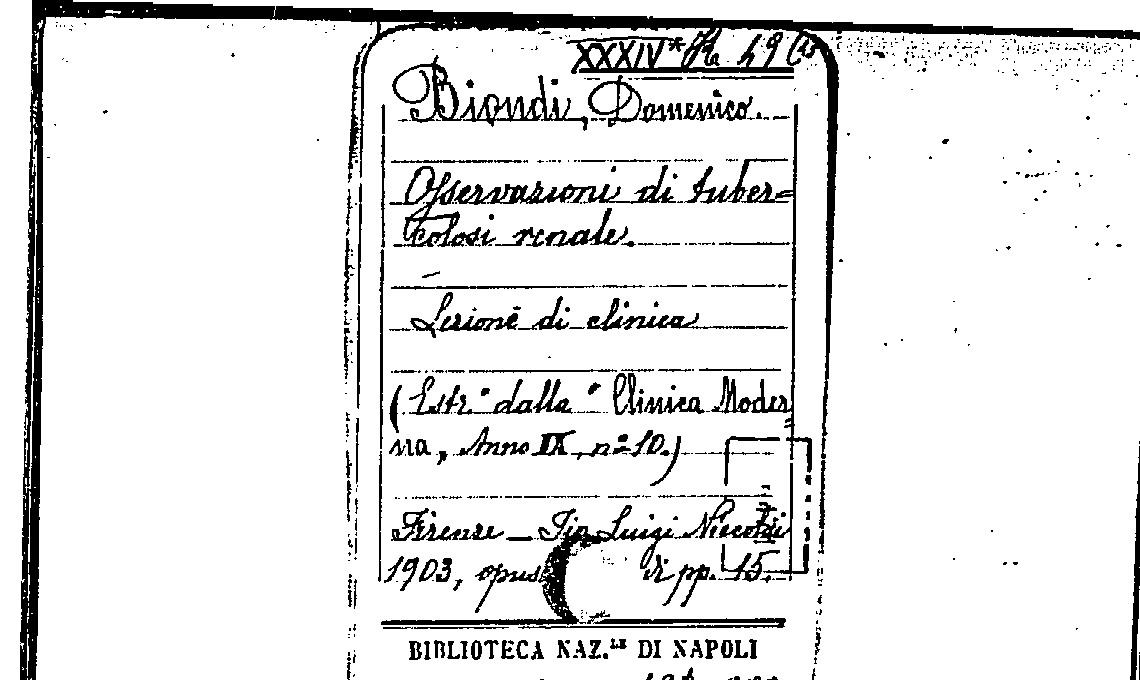 XXXIVᵃ
Biondi, Domenico.
Osservazioni di tuber=
colosi renale.
Lezione di clinica
(Estr° dalla " Clinica Moder
na, Anno IX, n° 10.)
Firenze – Tip Luigi Niccolai
1903, opus di pp. 15.
BIBLIOTECA NAZ.LE DI NAPOLI